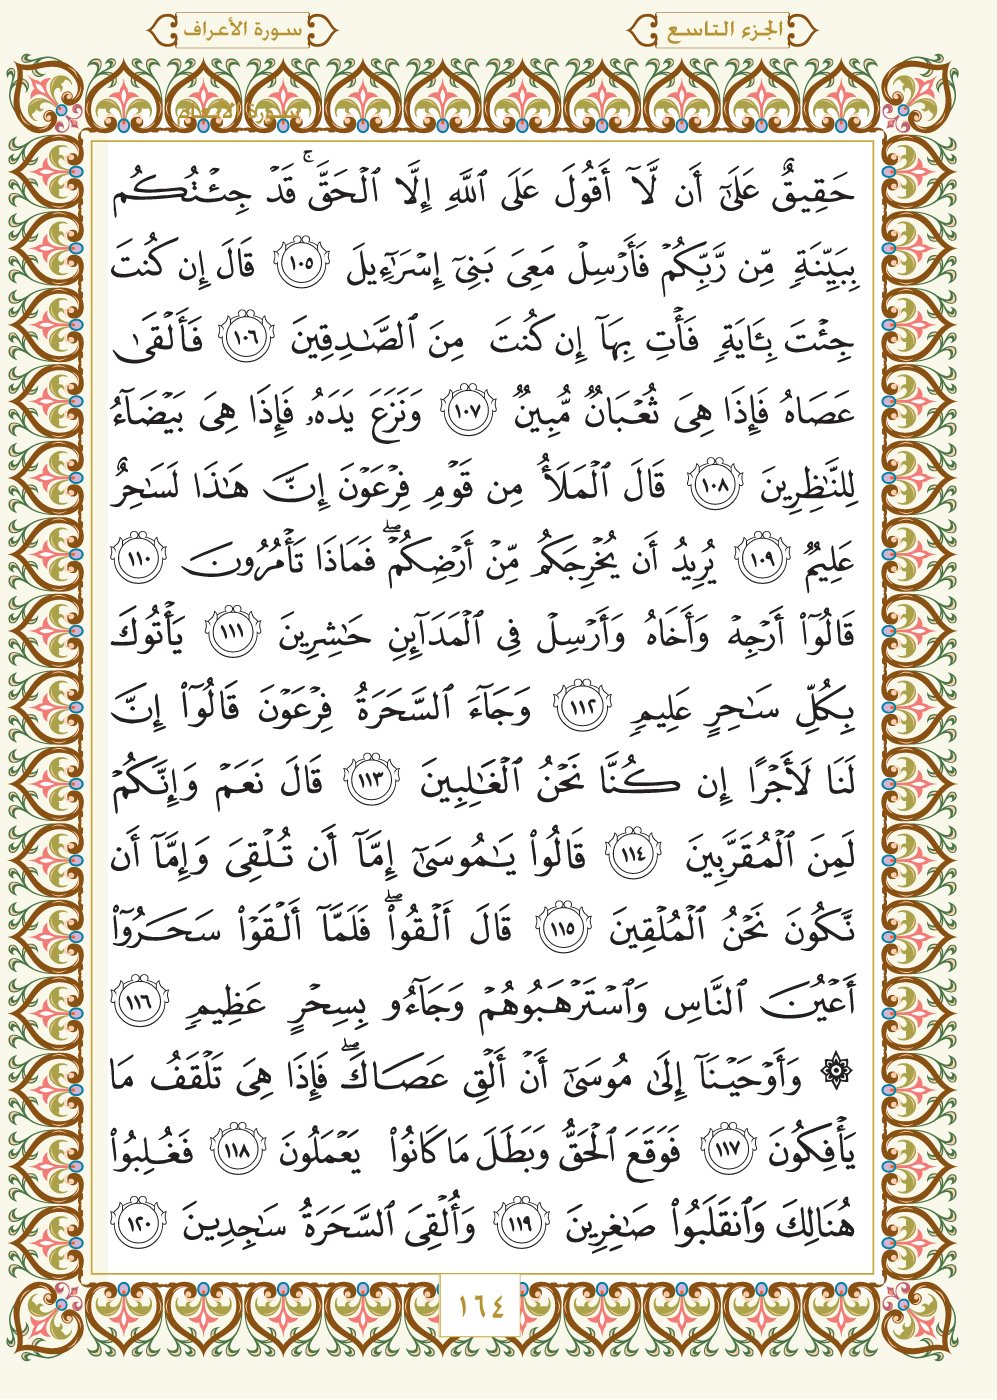 الجزء التاسع
سورة الأعراف
سورة الأنعام
حَقِيقٌ عَلَىٰٓ أَن لَّآ أَقُولَ عَلَى ٱللَّهِ إِلَّا ٱلۡحَقَّۚ قَدۡ جِئۡتُكُم
بِبَيِّنَةٖ مِّن رَّبِّكُمۡ فَأَرۡسِلۡ مَعِيَ بَنِيٓ إِسۡرَٰٓءِيلَ ١٠٥ قَالَ إِن كُنتَ
جِئۡتَ بِـَٔايَةٖ فَأۡتِ بِهَآ إِن كُنتَ مِنَ ٱلصَّٰدِقِينَ ١٠٦ فَأَلۡقَىٰ
عَصَاهُ فَإِذَا هِيَ ثُعۡبَانٞ مُّبِينٞ ١٠٧ وَنَزَعَ يَدَهُۥ فَإِذَا هِيَ بَيۡضَآءُ
لِلنَّٰظِرِينَ ١٠٨ قَالَ ٱلۡمَلَأُ مِن قَوۡمِ فِرۡعَوۡنَ إِنَّ هَٰذَا لَسَٰحِرٌ
عَلِيمٞ ١٠٩ يُرِيدُ أَن يُخۡرِجَكُم مِّنۡ أَرۡضِكُمۡۖ فَمَاذَا تَأۡمُرُونَ ١١٠
قَالُوٓاْ أَرۡجِهۡ وَأَخَاهُ وَأَرۡسِلۡ فِي ٱلۡمَدَآئِنِ حَٰشِرِينَ ١١١ يَأۡتُوكَ
بِكُلِّ سَٰحِرٍ عَلِيمٖ ١١٢ وَجَآءَ ٱلسَّحَرَةُ فِرۡعَوۡنَ قَالُوٓاْ إِنَّ
لَنَا لَأَجۡرًا إِن كُنَّا نَحۡنُ ٱلۡغَٰلِبِينَ ١١٣ قَالَ نَعَمۡ وَإِنَّكُمۡ
لَمِنَ ٱلۡمُقَرَّبِينَ ١١٤ قَالُواْ يَٰمُوسَىٰٓ إِمَّآ أَن تُلۡقِيَ وَإِمَّآ أَن
نَّكُونَ نَحۡنُ ٱلۡمُلۡقِينَ ١١٥ قَالَ أَلۡقُواْۖ فَلَمَّآ أَلۡقَوۡاْ سَحَرُوٓاْ
أَعۡيُنَ ٱلنَّاسِ وَٱسۡتَرۡهَبُوهُمۡ وَجَآءُو بِسِحۡرٍ عَظِيمٖ ١١٦
۞ وَأَوۡحَيۡنَآ إِلَىٰ مُوسَىٰٓ أَنۡ أَلۡقِ عَصَاكَۖ فَإِذَا هِيَ تَلۡقَفُ مَا
يَأۡفِكُونَ ١١٧ فَوَقَعَ ٱلۡحَقُّ وَبَطَلَ مَا كَانُواْ يَعۡمَلُونَ ١١٨ فَغُلِبُواْ
هُنَالِكَ وَٱنقَلَبُواْ صَٰغِرِينَ ١١٩ وَأُلۡقِيَ ٱلسَّحَرَةُ سَٰجِدِينَ ١٢٠
١٦٤